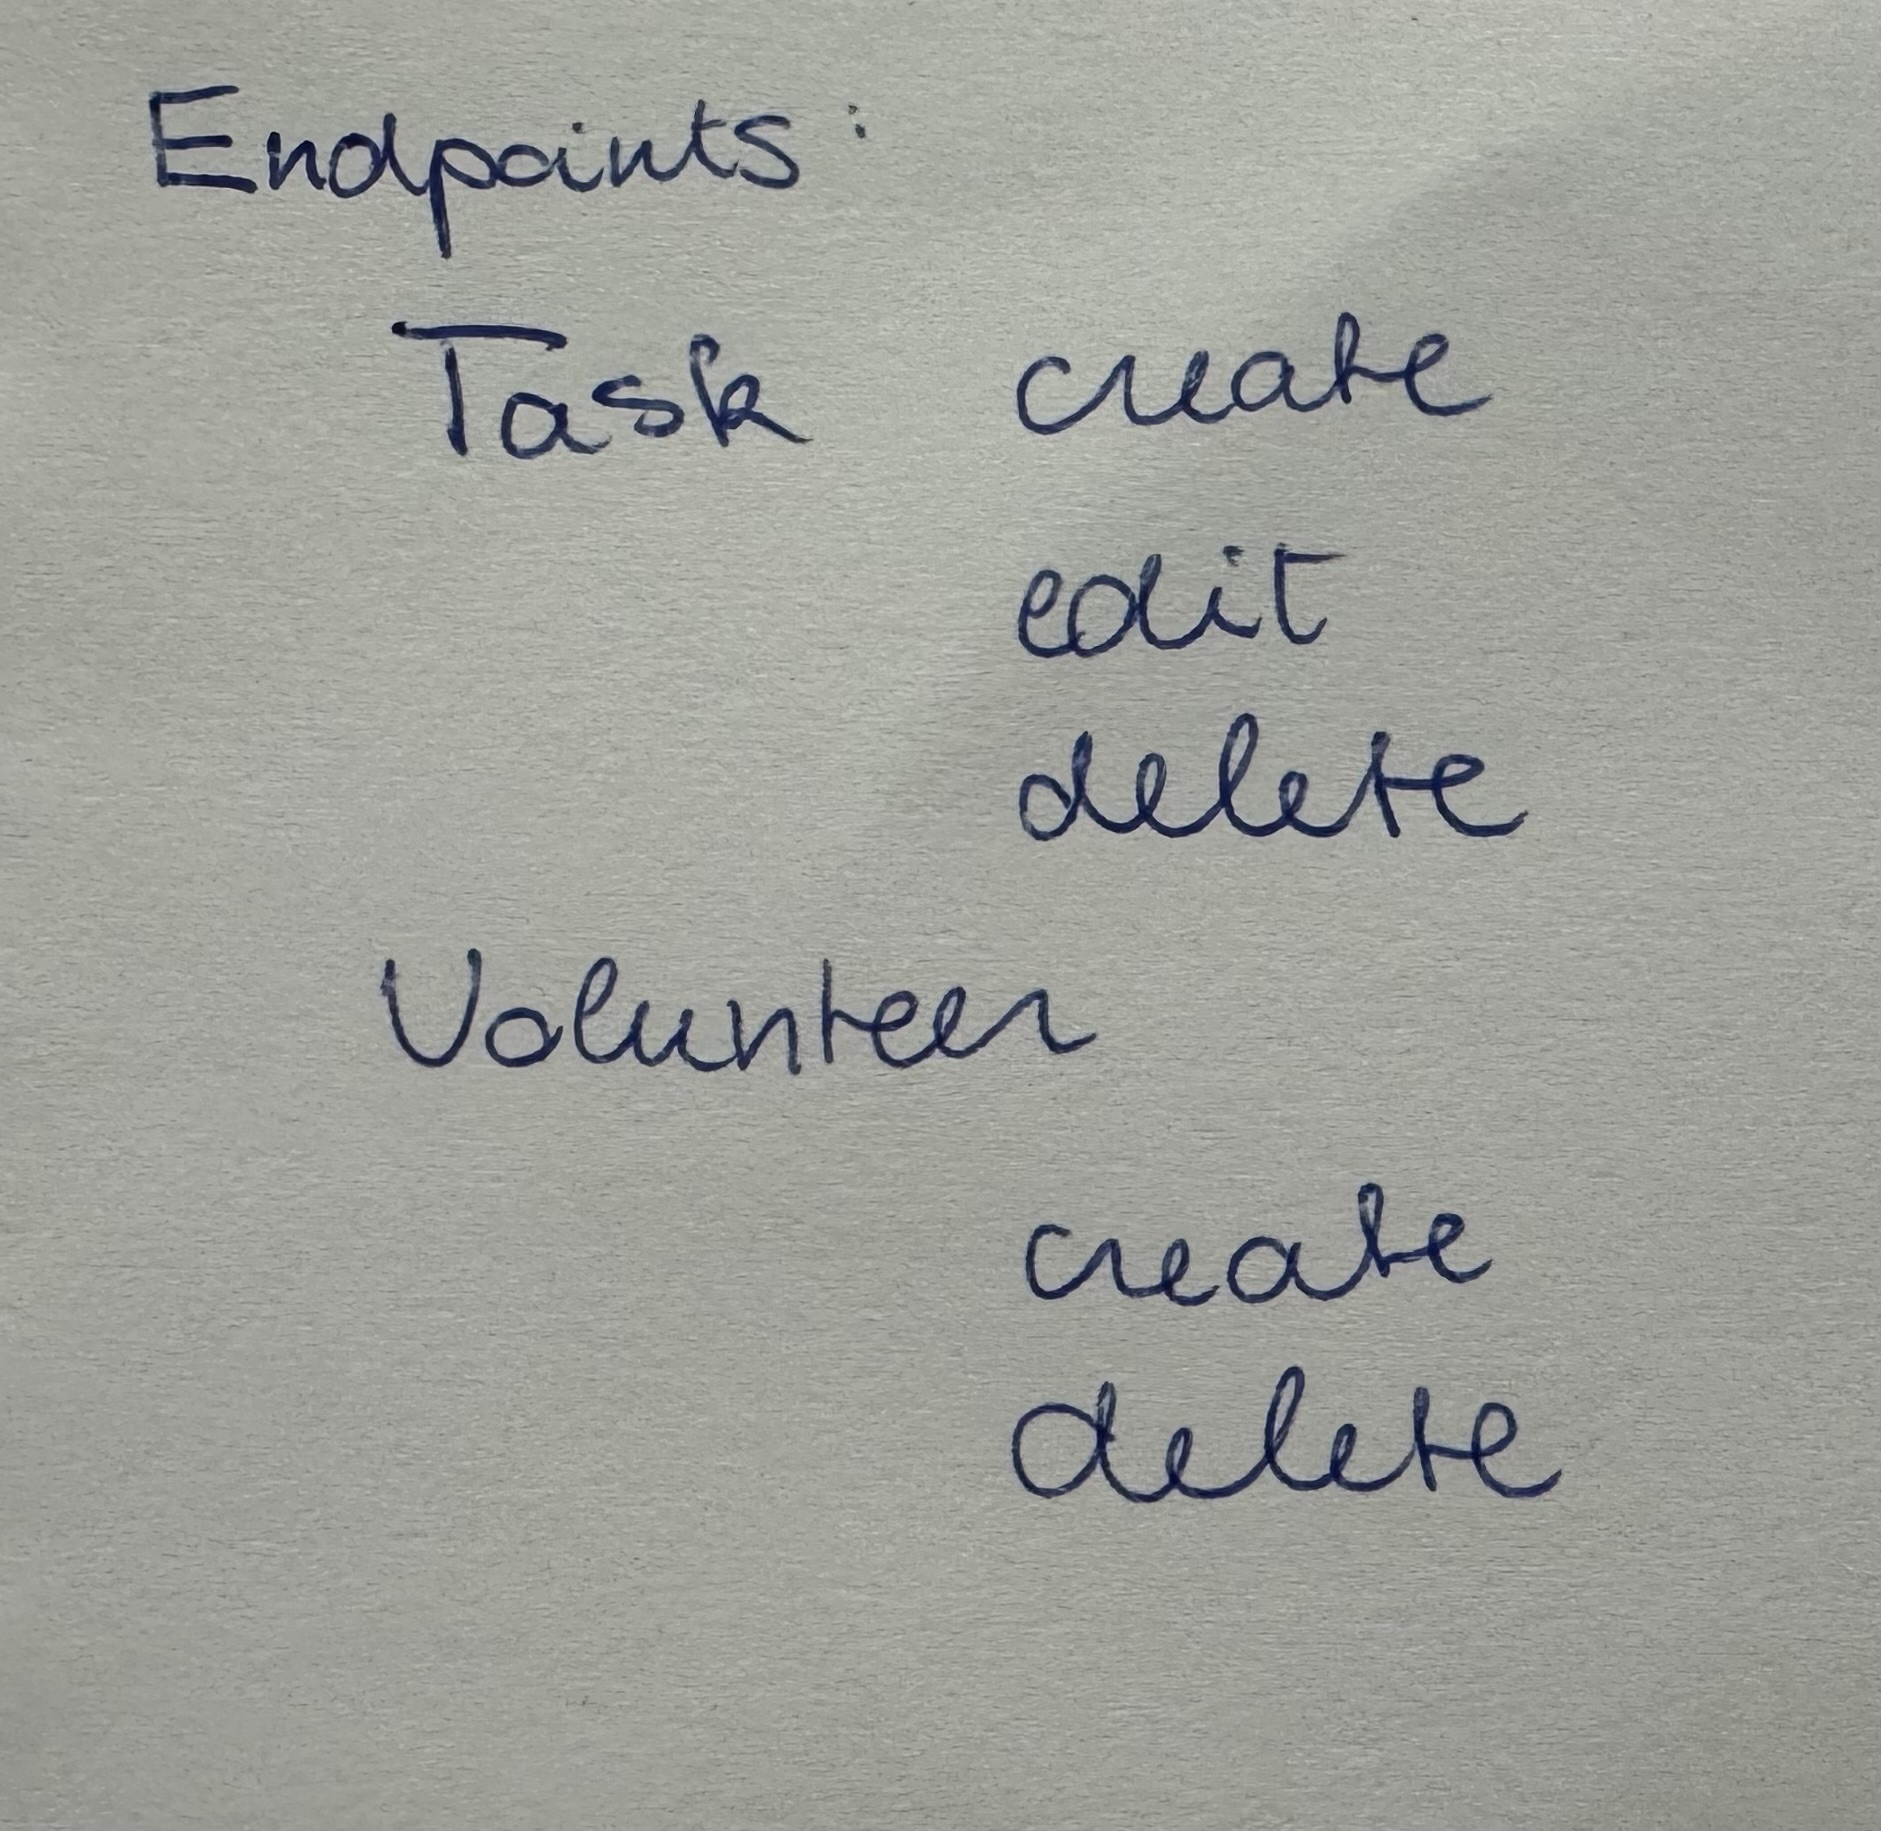 Endpoints:
Task create
edit
delete
Volunteer
create
delete